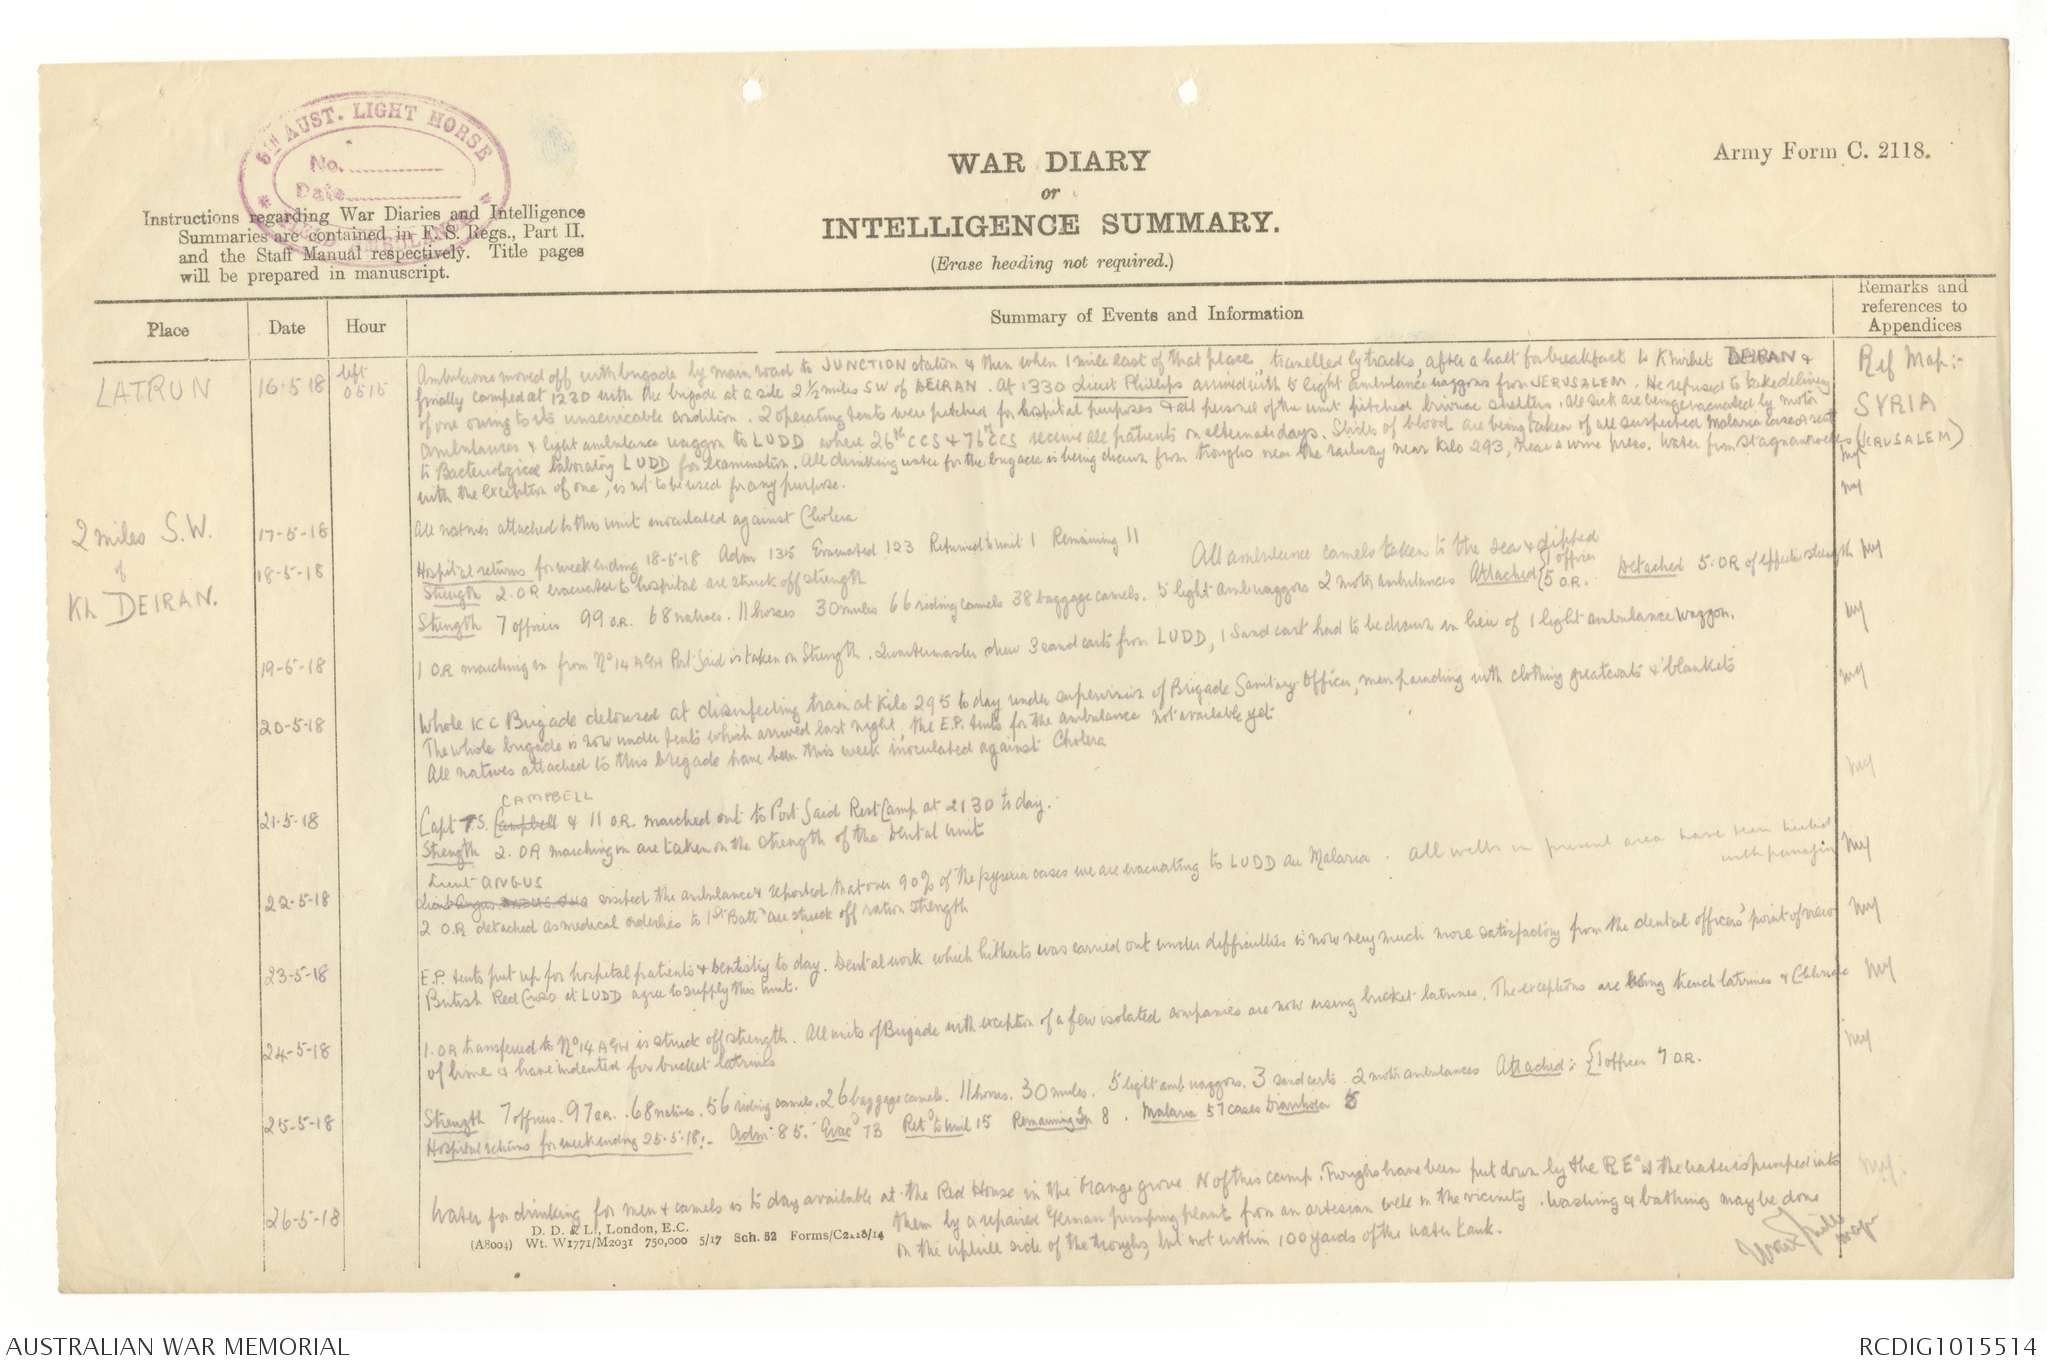 6TH AUST. LIGHT HORSE
No.
Date
FIELD AMBULANCE
Army Form C. 2118.
WAR DIARY
or
INTELLIGENCE SUMMARY.
(Erase heading not required.)
Instructions regarding War Diaries and Intelligence
Summaries are contained in F. S. Regs., Part II.
and the Staff Manual respectively. Title pages
will be prepared in manuscript.
Place
Date
Hour
Summary of Events and Information
Remarks and
references to
Appendices
LATRUN
16-5-18
left
0515
Ambulance moved off with brigade by main road to JUNCTION station & then when 1 mile east of that place, travelled by tracks, after a halt for breakfast to Khirbet DEIRAN &
finally camped at 1230 with the brigade at a site 2½ miles SW of DEIRAN. At 1330 Lieut Phillips arrived with 6 light ambulance waggons from JERUSALEM. He refused to take delivery
of one owing to its unserviceable condition. 2 operating tents were pitched for hospital purposes & all personel of the unit pitched bivouac shelters. All sick are being evacuated by motor
ambulances & light ambulance waggon to LUDD where 26th CCS & 76th CCS receive all patients on alternate days. Slides of blood are being taken of all suspected Malaria cases & sent
to Bacteriological laboratory LUDD for examination. All drinking water for the brigade is being drawn from troughs near the railway near Kilo 293, near a wine press. Water from stagnant
with the exception of one, is not to be used for any purpose.
Ref Map:-
SYRIA
(JERUSALEM)
my
my
2 miles S.W.
of
Kh DEIRAN.
17-5-18
All natives attached to this unit inoculated against Cholera
18-5-18
Hospital returns for week ending 18-5-18 Adm 135 Evacuated 123 Returned to unit 1 Remaining 11
All ambulance camels taken to the sea & dipped
Strength 2. OR evacuated to hospital are struck off strength
Strength 7 officers 99 O.R. 68 natives. 11 horses 30 mules 66 riding camels 38 baggage camels. 5 light amb waggons 2 motor ambulances Attached { 1 officer 5 O.R. Detached 5. OR of effective strength
my
my
19-5-18
1 OR marching in from No 14 AGH Port Said is taken on Strength. Quartermaster drew 3 sand carts from LUDD, 1 Sand cart had to be drawn in lieu of 1 light ambulance waggon.
my
20-5-18
Whole ICC Brigade deloused at disinfecting train at Kilo 295 to day under supervision of Brigade Sanitary Officer, men parading with clothing greatcoats & blankets
The whole brigade is now under tents which arrived last night, the E.P. tents for the ambulance not available yet
All natives attached to this brigade have been this week inoculated against Cholera
my
21-5-18
CAMPBELL
Capt T.S. Campbell & 11 O.R. marched out to Port Said Rest Camp at 2130 to day.
Strength 2. OR marching in are taken on the strength of the Dental Unit
my
22-5-18
Lieut ANGUS
visited the ambulance & reported that over 90% of the pyrexia cases we are evacuating to LUDD are Malaria. All wells in present area have been treated
with paraffin
2 O.R detached as medical orderlies to 1st Battn are struck off ration strength
my
23-5-18
E.P. tents put up for hospital patients & Dentistry to day. Dental work which hitherto was carried out under difficulties is now very much more satisfactory from the dental officers' point of view
British Red Cross at LUDD agree to supply this unit.
my
24-5-18
1. OR transferred to No 14 AGH is struck off strength. All units of Brigade with exception of a few isolated companies are now using bucket latrines. The exceptions are using trench latrines & Chloride
of lime & have indented for bucket latrines
my
25-5-18
Strength 7 officers. 97 O.R. 68 natives. 56 riding camels. 26 baggage camels. 11 horses. 30 mules. 5 light amb waggons. 3 sand carts. 2 motor ambulances Attached: {1 officer 7 O.R.
Hospital returns for week ending 25-5-18:- Adm 85. Evacd 73 Retd to Unit 15 Remaining In 8. Malaria 57 cases Diarrhoea 5
my
26-5-18
Water for drinking for men & camels is to day available at the Red House in the Orange grove N of this camp. Troughs have been put down by the REs & the water is pumped into
them by a repaired German pumping plant from an artesian well in the vicinity. Washing & bathing may be done
on the uphill side of the troughs, but not within 100 yards of the water tank.
my
Major
D. D. & L., London, E.C.
(A8004) Wt. W1771/M2031 750,000 5/17 Sch. 52 Forms/C2118/14
AUSTRALIAN WAR MEMORIAL
RCDIG1015514